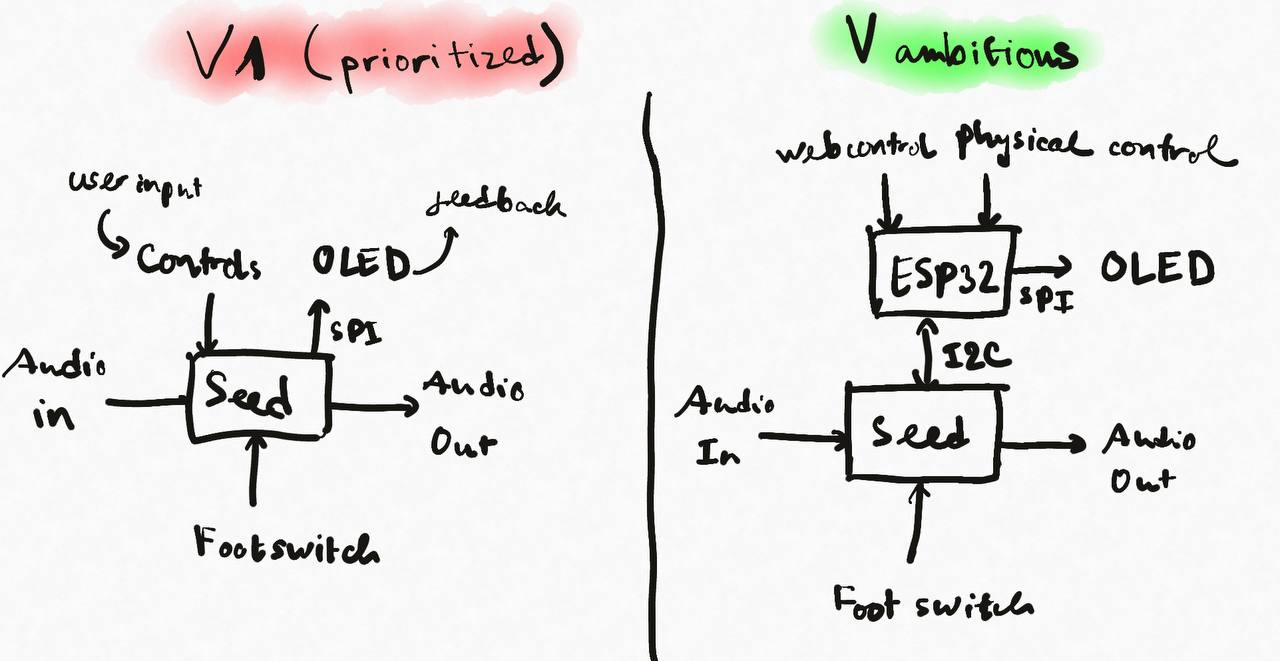 V1 (prioritized)
user input
feedback
Controls
OLED
SPI
Audio
in
Seed
Audio
Out
Footswitch
V ambitious
webcontrol physical control
ESP32
SPI
OLED
I2C
Audio
In
Seed
Audio
Out
Foot switch